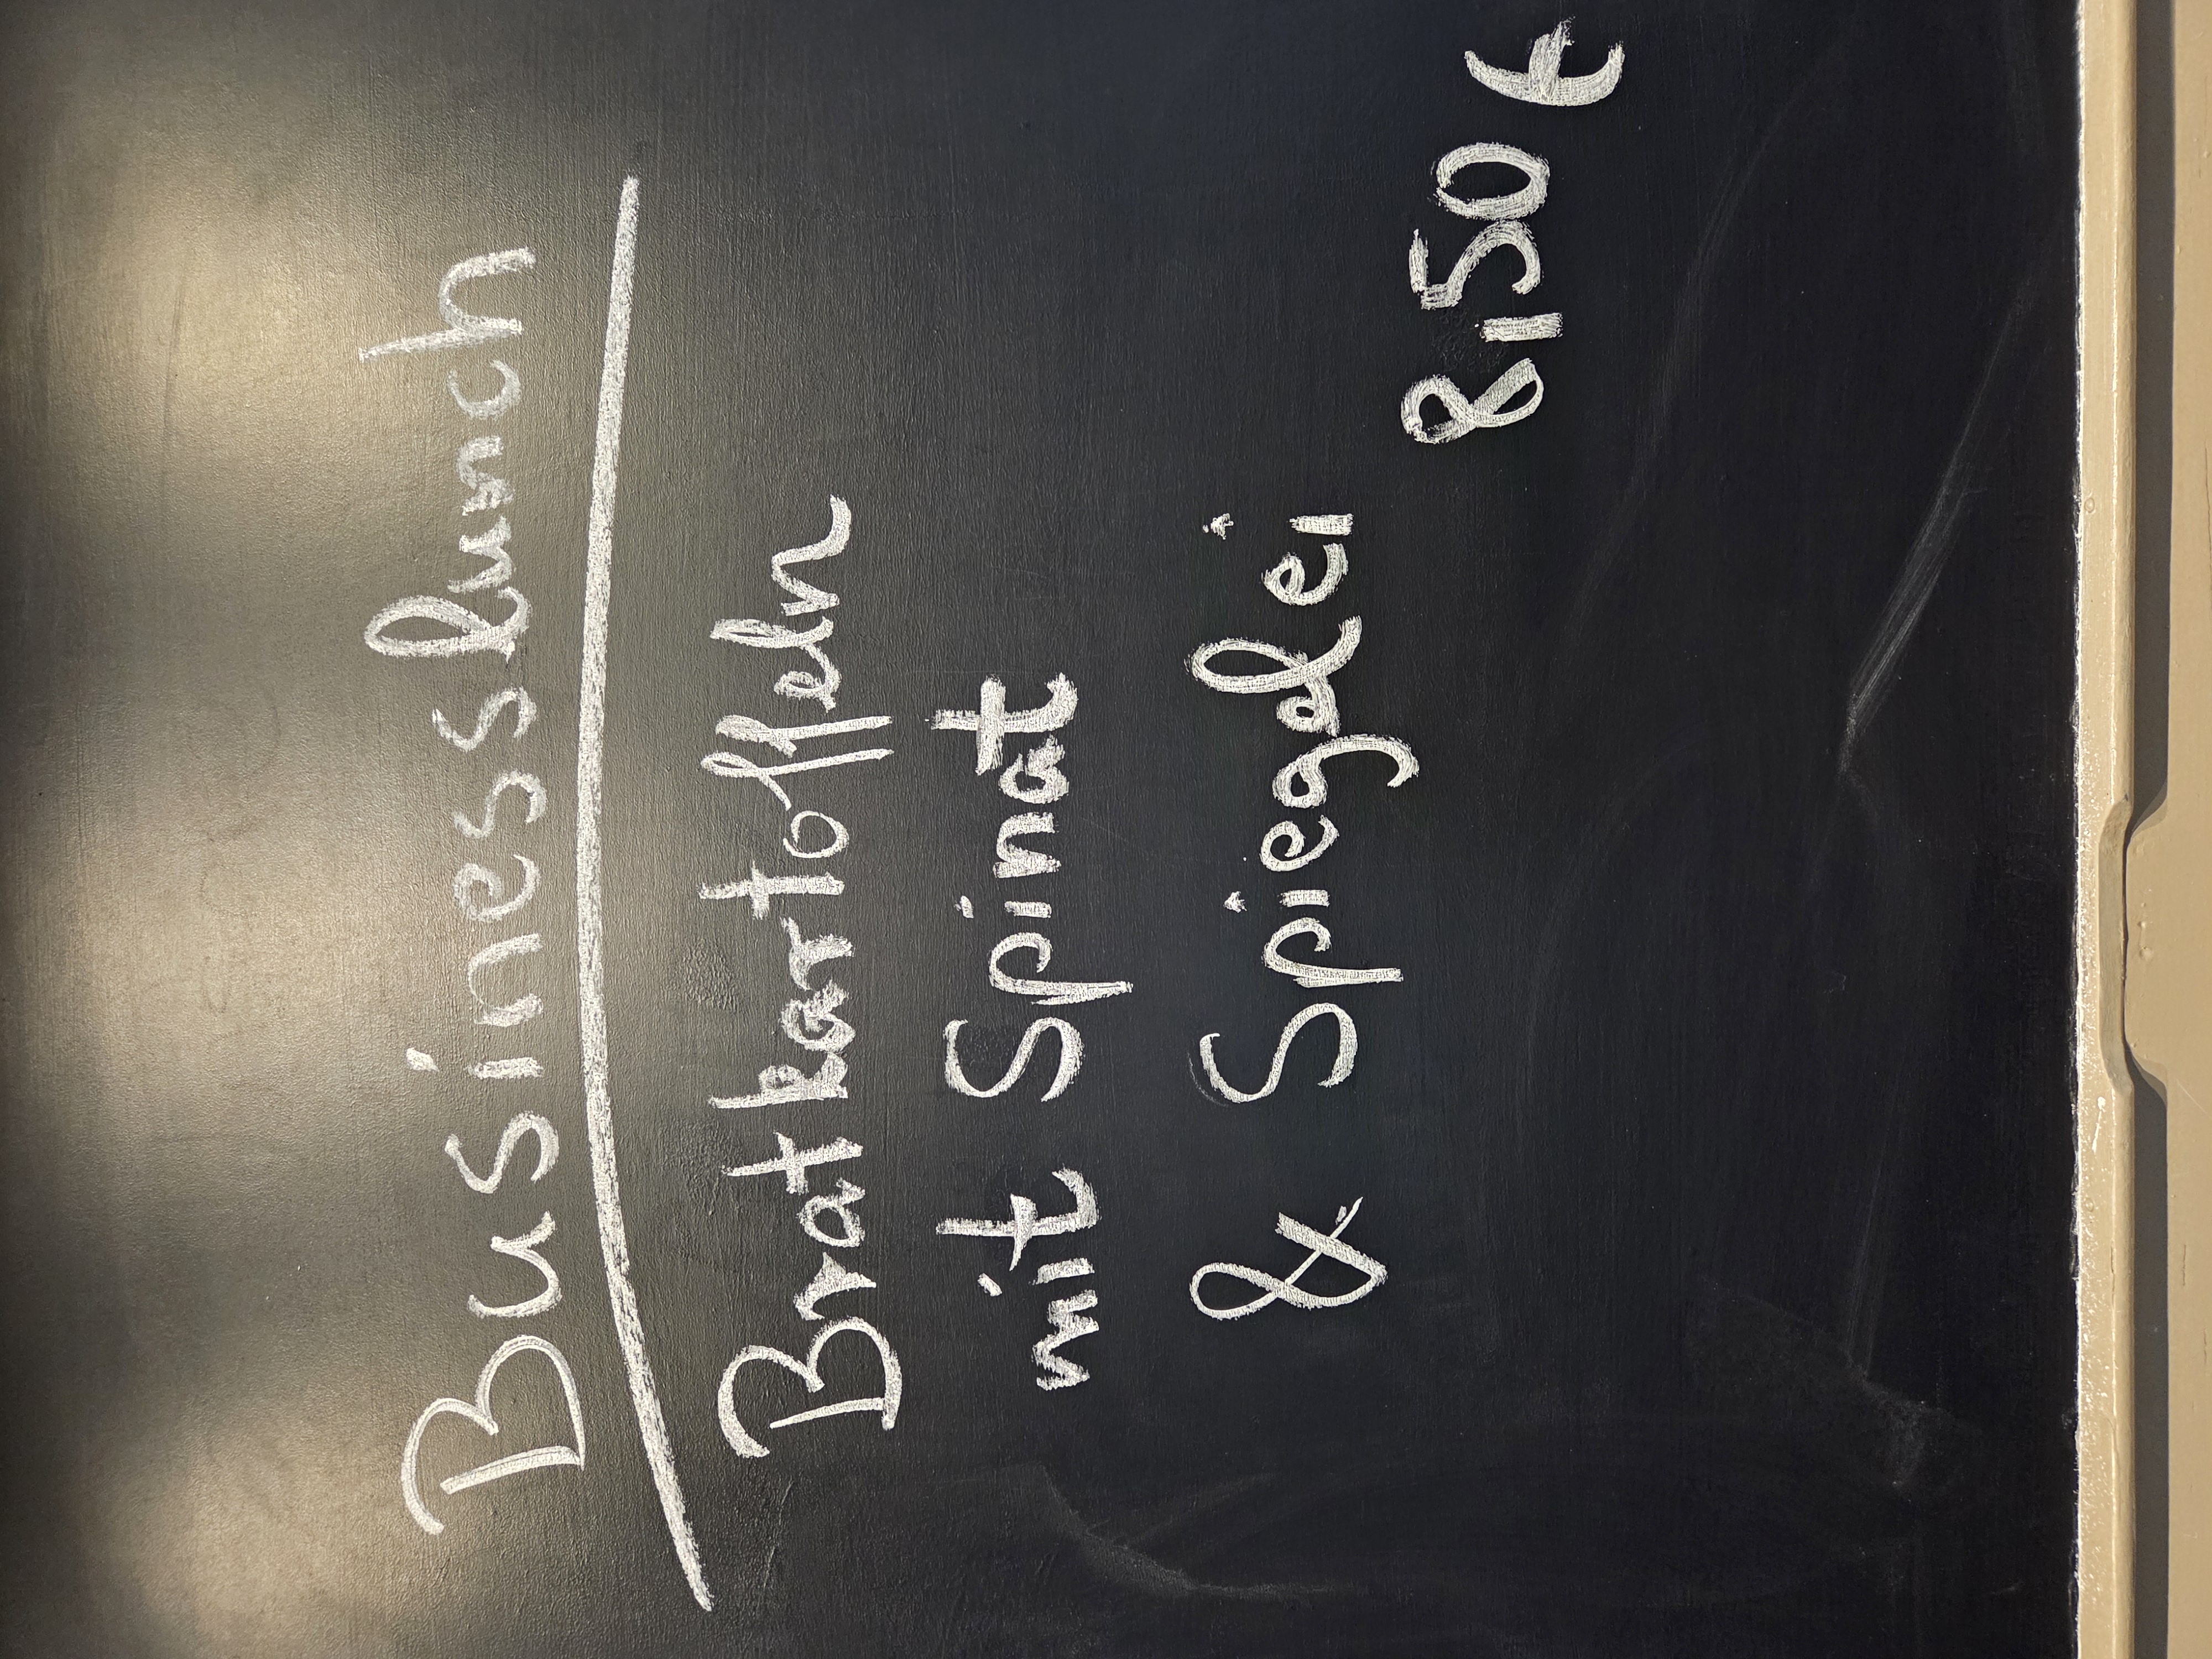 Businesslunch
Bratkartoffeln
mit Spinat
& Spiegelei
8,50 €